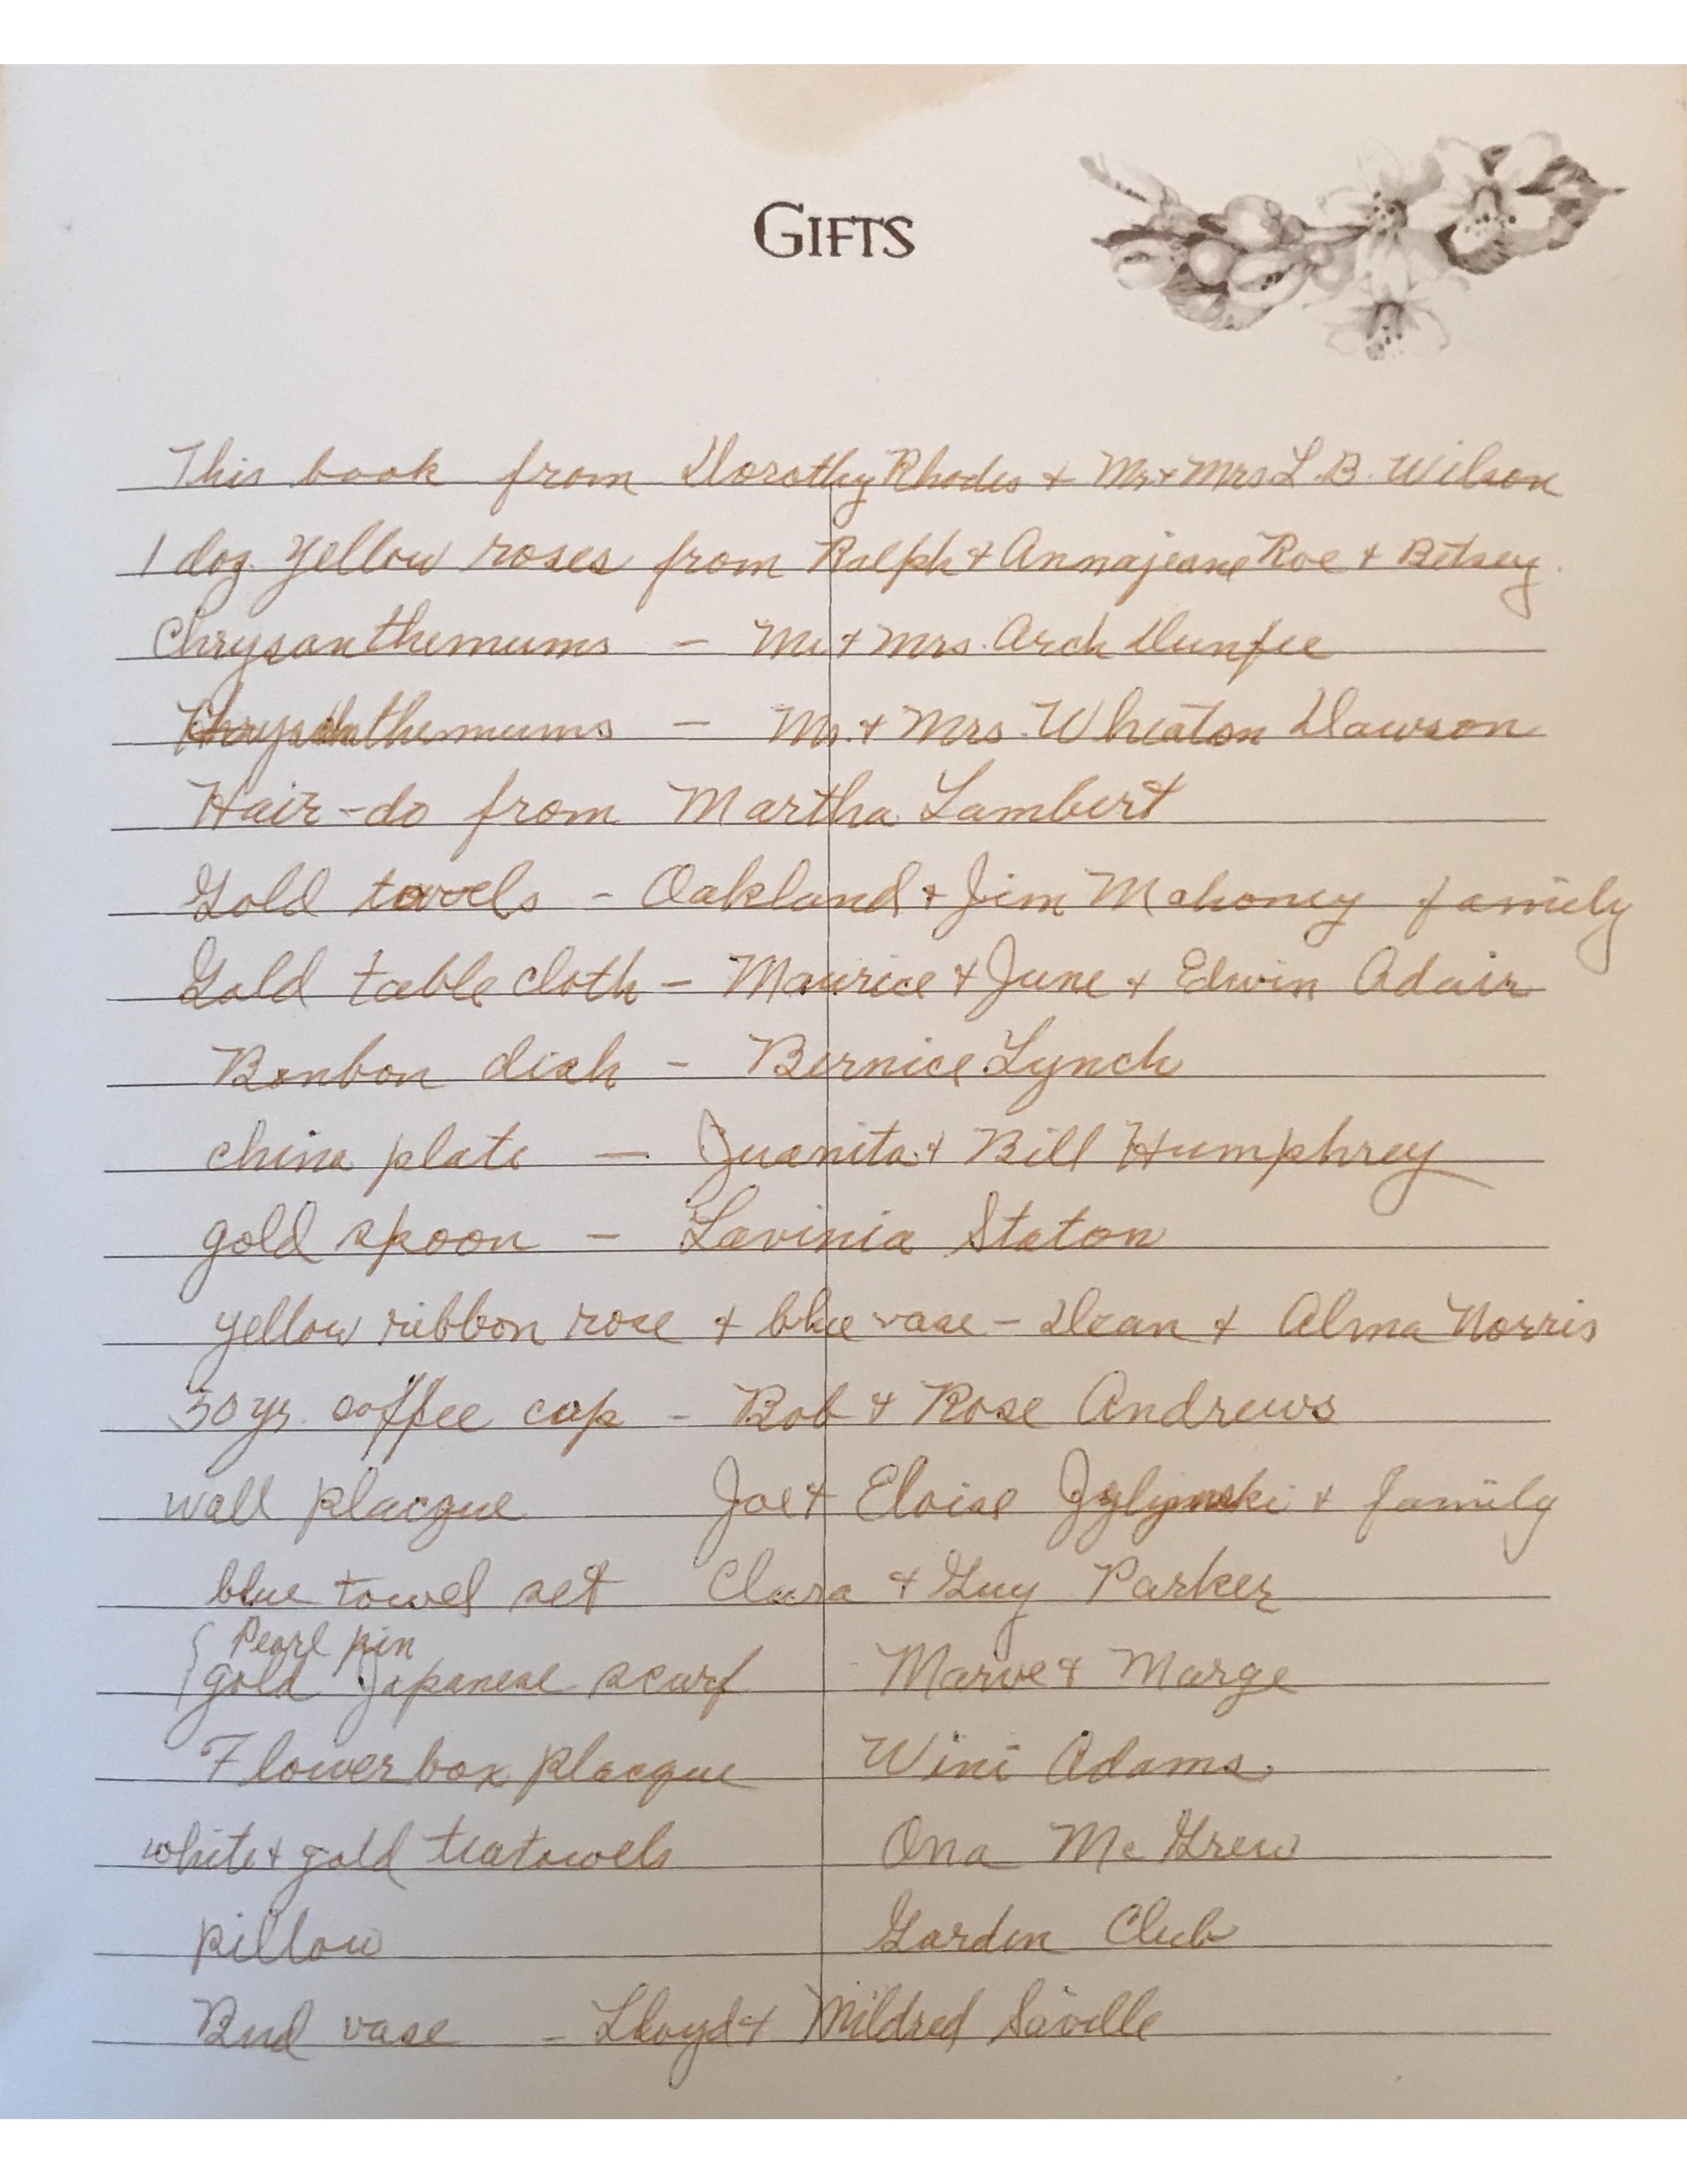 GIFTS
This book from Dorothy Rhodes + Mr + Mrs L.B. Wilson
1 doz. yellow roses from Ralph + Annajeane Roe + Betsey.
Chrysanthemums - Mr + Mrs. Arch Dunfee
Chrysanthemums - Mr. + Mrs. Wheaton Dawson
Hair-do from Martha Lambert
Gold towels - Oakland + Jim Mahoney family
Gold table cloth - Maurice + June + Elwin Adair
Bonbon dish - Bernice Lynch
china plate - Juanita + Bill Humphrey
gold spoon - Lavinia Staton
yellow ribbon rose + blue vase - Dean + Alma Norris
50 yr. coffee cup - Bob + Rose Andrews
wall placque Joe + Eloise + family
blue towel set Clara + Guy Parker
{ Pearl pin
gold Japanese scarf Marve + Marge
Flower box placque Wini Adams.
white + gold teatowels Ona McGrew
pillow Garden Club
Bud vase - Lloyd + Mildred Saville